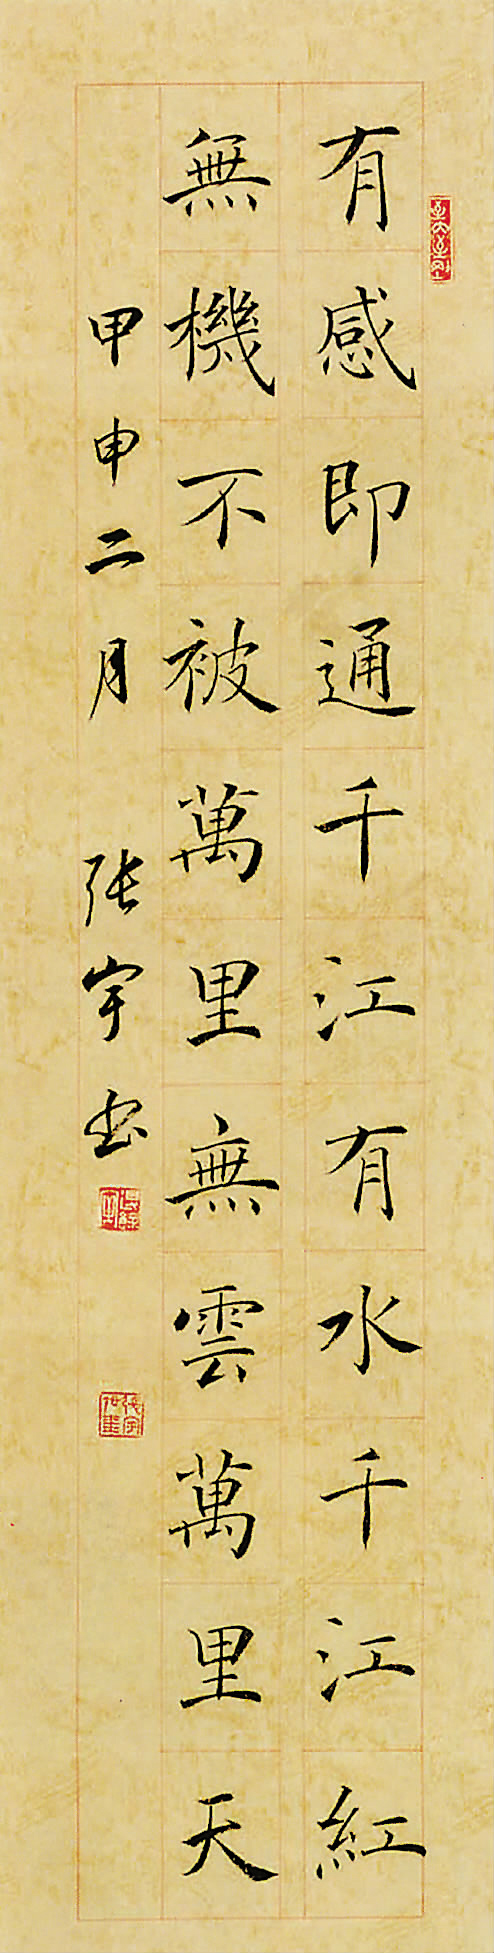 有感即通千江有水千江紅
無機不被萬里無雲萬里天
甲申二月 张宇书